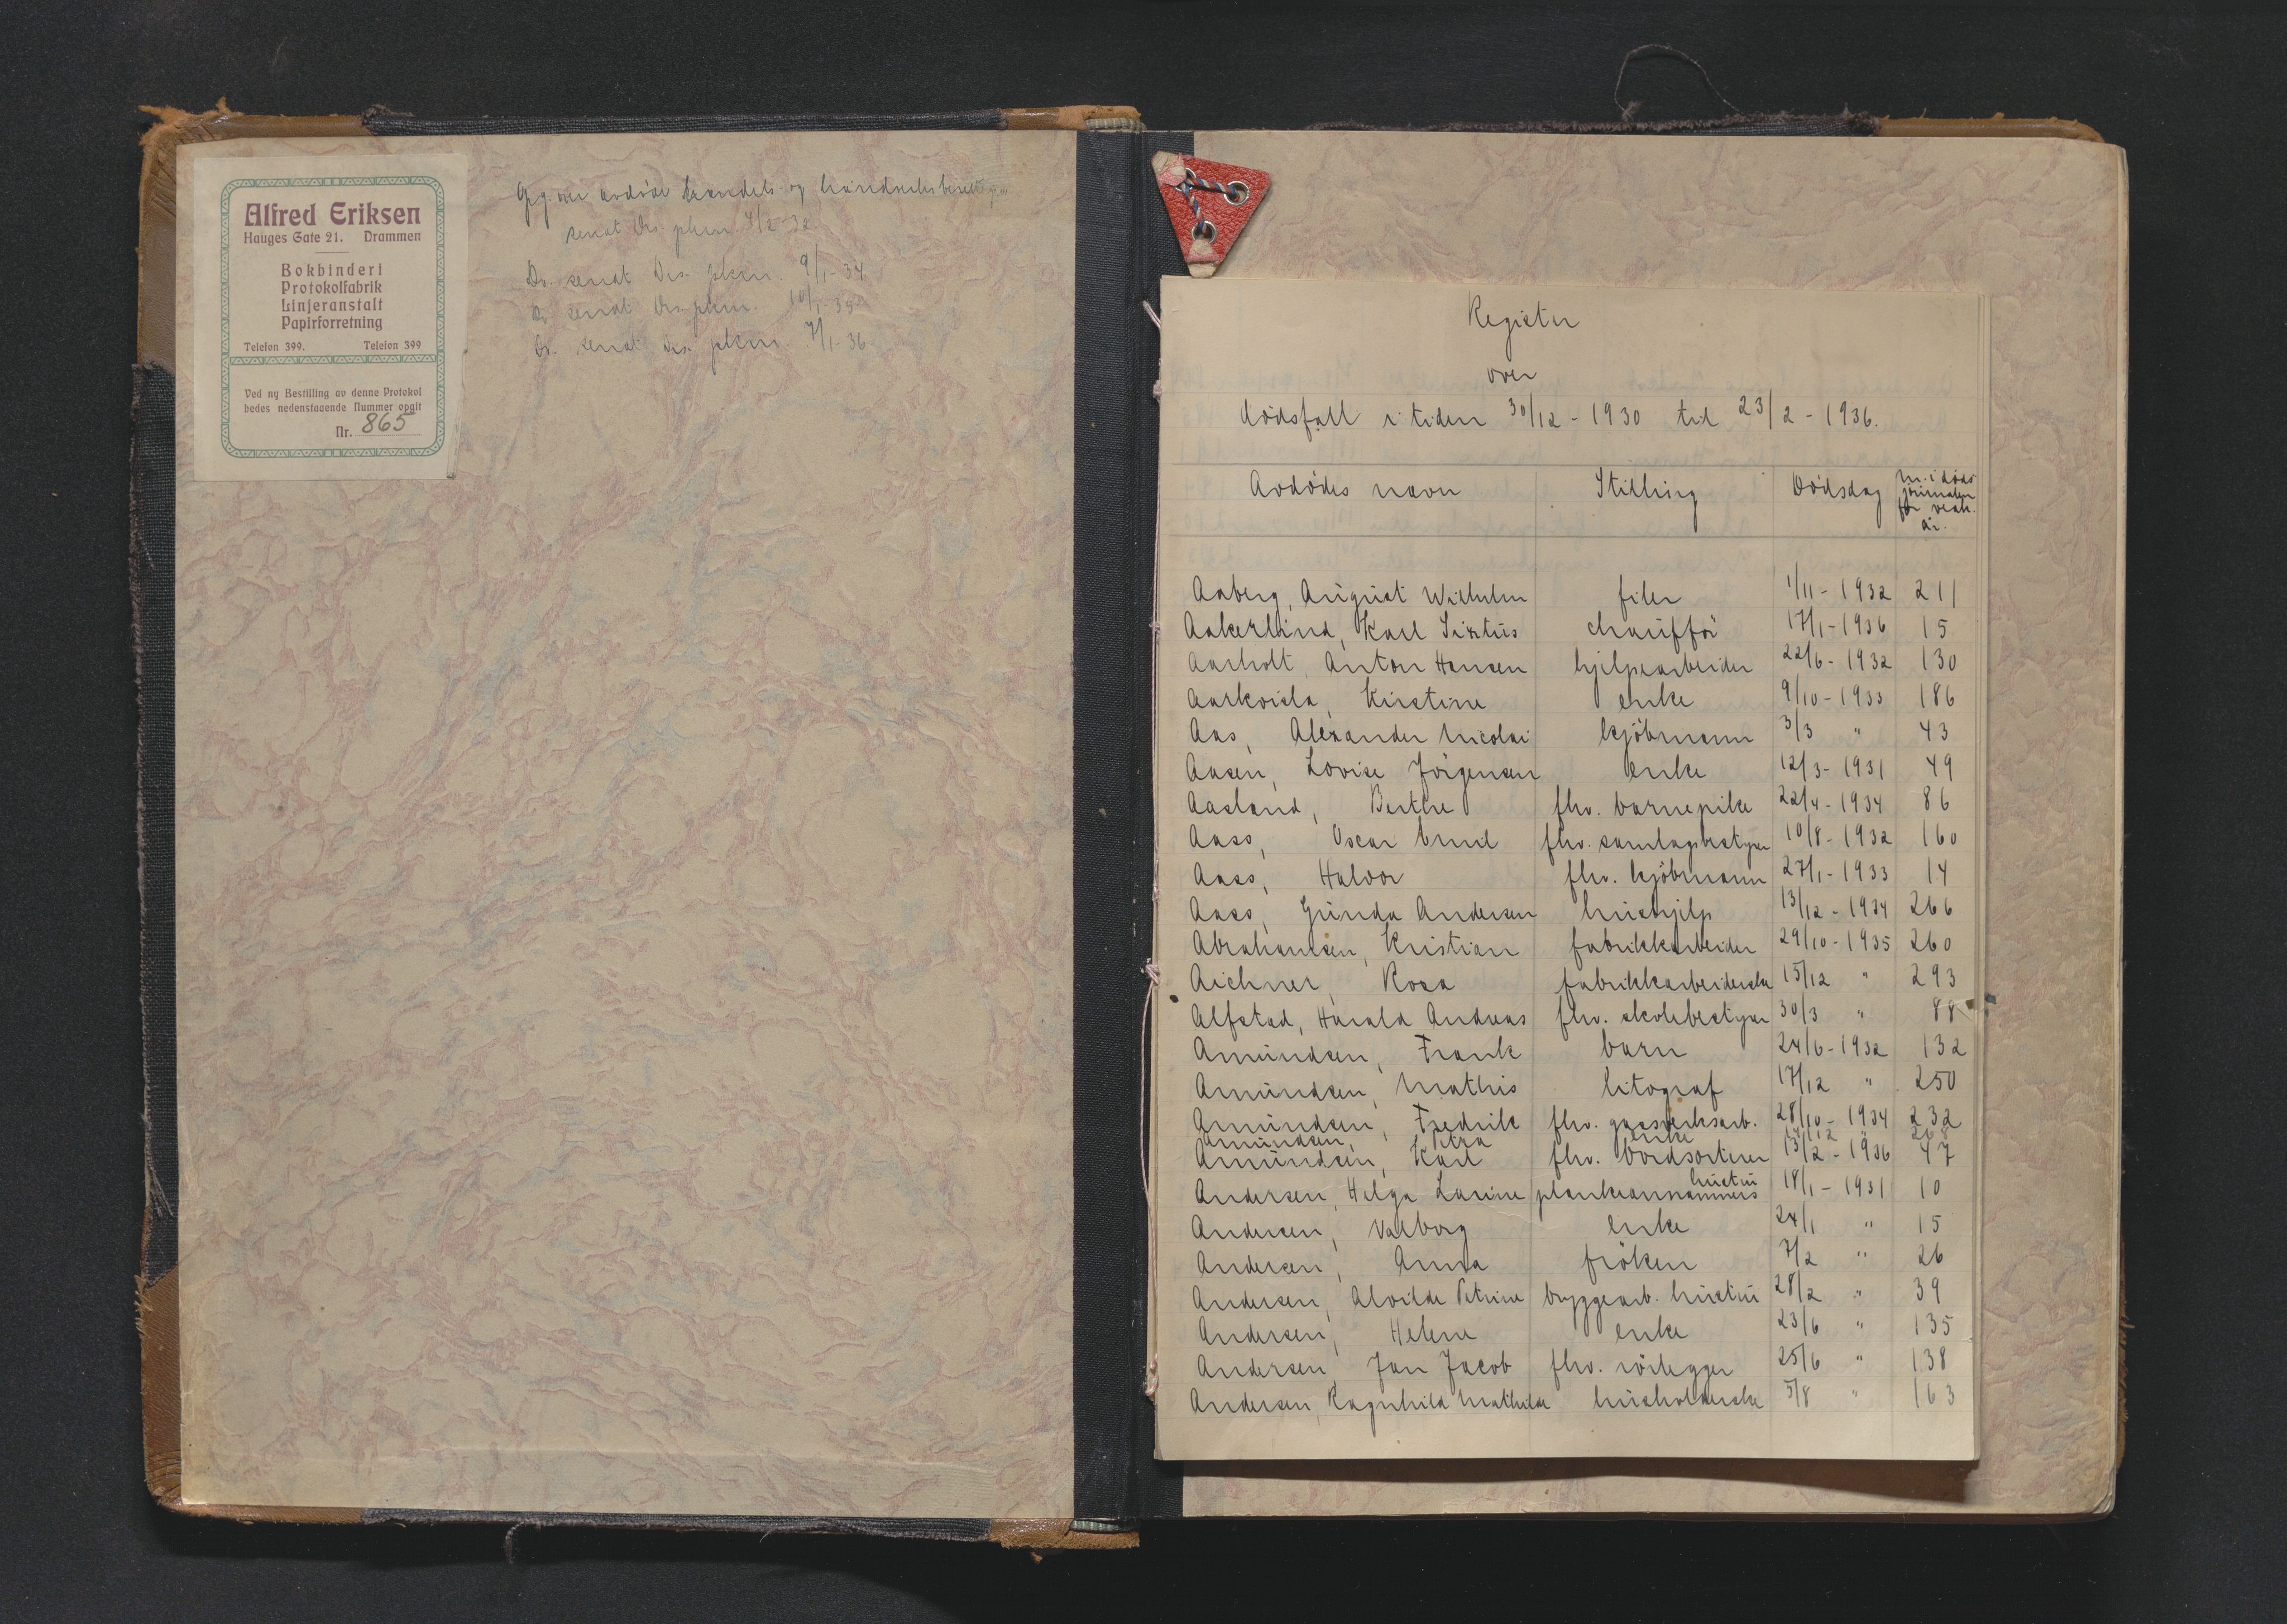 Alfred Eriksen
Hauges Gate 21. Drammen
Bokbinderi
Protokolfabrik
Linjeranstalt
Papirforretning
Telefon 399. Telefon 399
Ved ny Bestilling av denne Protokol
bedes nedenstaaende Nummer opgit
Nr. 865
avdøde handels og
sendt 4/2-32
Do. sendt 9/1-34
Do sendt 10/1-35
Do. sendt 7/1-36
Register
over
dødsfall i tiden 30/12-1930 til 23/2-1936.
Avdødes navn Stilling Dødsdag Nr. i døds
journalen
for vedk.
år.
Aaberg, August Wilhelm filer 1/11-1932 211
Aakerlund, Karl Sixtus chauffør 17/1-1936 15
Aarholt, Anton Hansen hjelpearbeider 22/6-1932 130
Aarkvisla, Kirstine enke 9/10-1933 186
Aas, Alexander Nicolai kjøbmann 3/3 " 43
Aasen, Lovise Jörgensen enke 12/3-1931 49
Aasland, Berthe fhv. barnepike 22/4-1934 86
Aass, Oscar Emil fhv. samlagsbestyrer 10/8-1932 160
Aass, Halvor fhv. kjöbmann 27/1-1933 14
Aass, Gunda Andersen hushjelp 13/12-1934 266
Abrahamsen, Kristian fabrikkarbeider 29/10-1935 260
Aichner, Rosa fabrikkarbeiderske 15/12 " 293
Alfstad, Harald Andreas fhv. skolebestyrer 30/3 " 88
Amundsen, Frank barn 24/6-1932 132
Amundsen, Mathis litograf 17/12 " 250
Amundsen, Fredrik fhv. gassverksarb. 28/10-1934 232
Amundsen, Petra enke
Amundsen, Karl fhv. bordsorterer 13/2-1936 47
Andersen, Helga Laurine plankeannammers hustru 18/1-1931 10
Andersen, Valborg enke 24/1 " 15
Andersen, Anna fröken 7/2 " 26
Andersen, Alvilde Petrine bryggearb. hustru 28/2 " 39
Andersen, Helene enke 23/6 " 135
Andersen, Jan Jacob fhv. rörlegger 25/6 " 138
Andersen, Ragnhild Mathilde husholderske 5/8 " 163